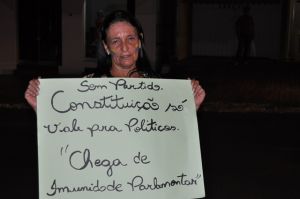 Sem Partido.
Constituição só
Vale pra Políticos.
"Chega de
Imunidade Parlamentar"